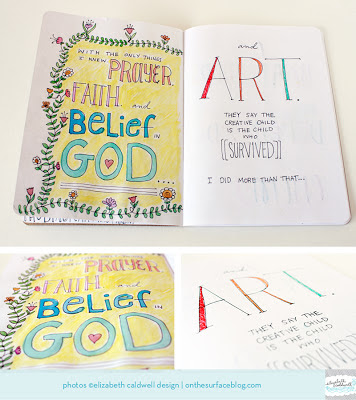 WITH THE ONLY THINGS
I KNEW, PRAYER,
FAITH, and
BELIEF IN
GOD....
and
ART.
THEY SAY THE
CREATIVE CHILD
IS THE CHILD
WHO
[[SURVIVED]]
I DID MORE THAN THAT....
PRAYER,
FAITH and
BELIEF IN
GOD
and
ART.
THEY SAY THE
CREATIVE CHILD
IS THE CHILD
WHO
photos ©elizabeth caldwell design | onthesurfaceblog.com